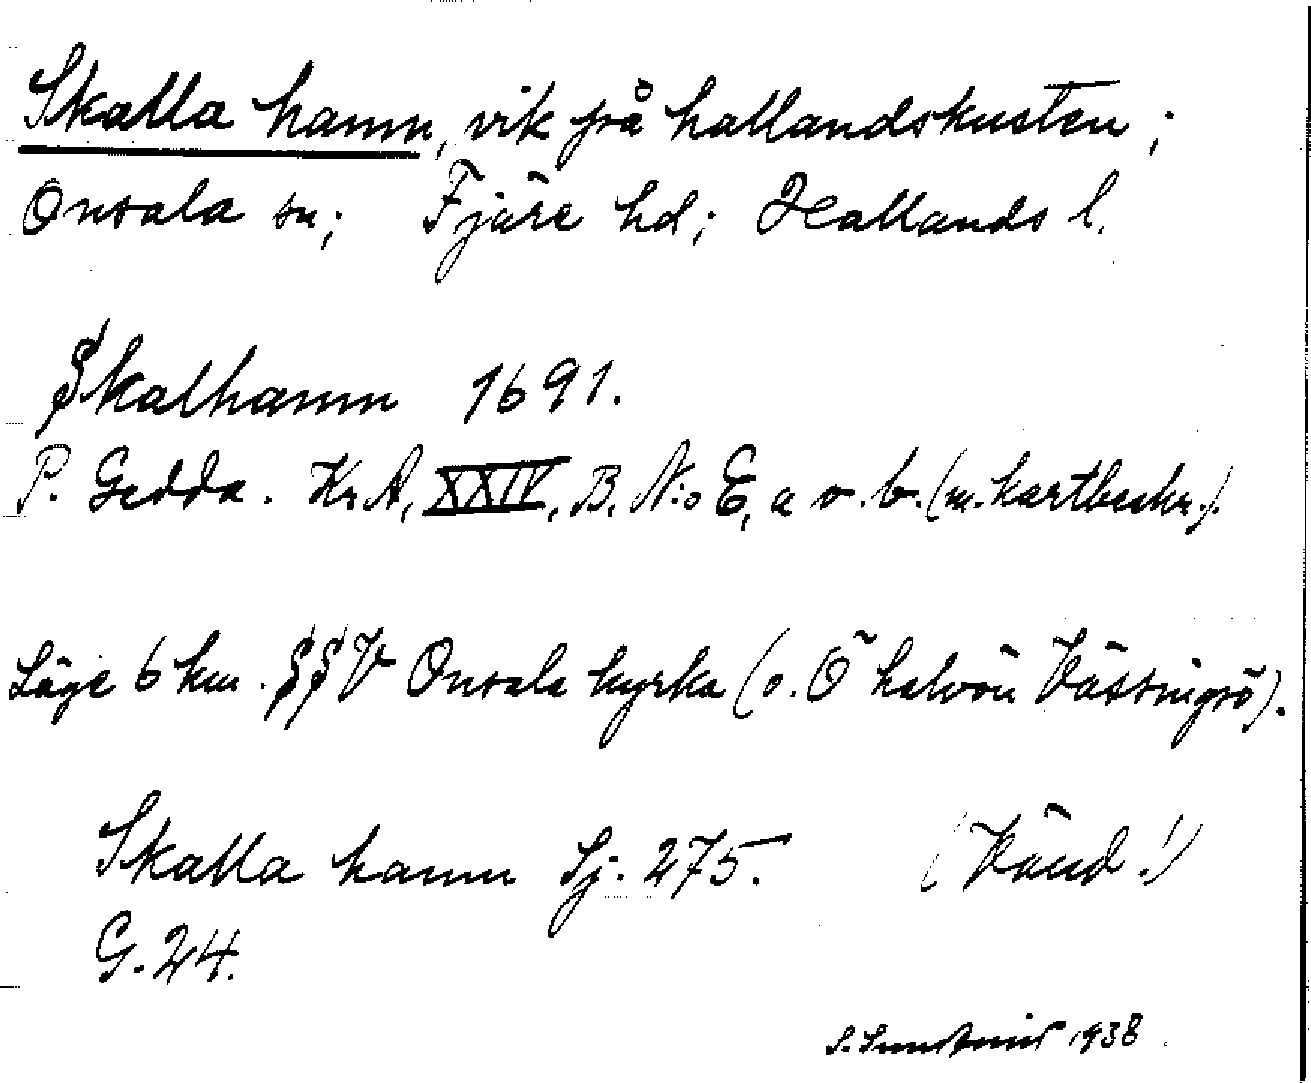 Skalla hamn, vik på hallandskusten;
Onsala sn; Fjäre hd; Hallands l.
Skalhamn 1691.
P. Gedda. Kr.A, XXIV, B. N:o E, a o. b. (m. kartbeskr.).
Läge 6 km. SSV Onsala kyrka (o. Ö halvön
Skalla hamn Sj. 275. (Vänd!)
G. 24.
1938